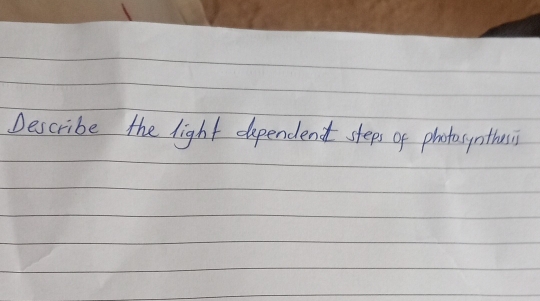 Describe the light dependent steps of photosynthesis